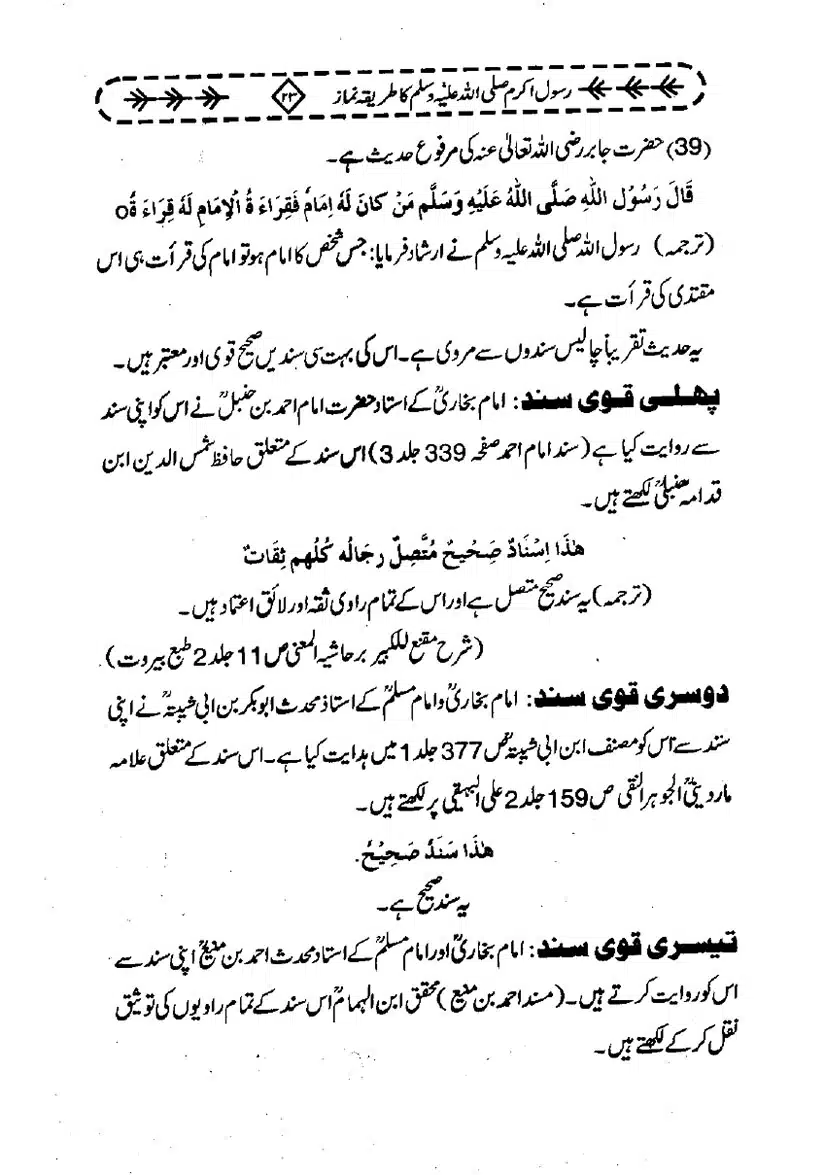 رسول اکرم صلی اللہ علیہ وسلم کا طریقہ نماز ۲۳
(39) حضرت جابر رضی اللہ تعالیٰ عنہ کی مرفوع حدیث ہے۔
قَالَ رَسُوْلُ اللهِ صَلَّى اللهُ عَلَيْهِ وَسَلَّم مَنْ كَانَ لَهُ اِمَامٌ فَقِرَاءَ ةُ الْاِمَامِ لَهُ قِرَاءَ ةٌ o
(ترجمہ) رسول اللہ صلی اللہ علیہ وسلم نے ارشاد فرمایا: جس شخص کا امام ہو تو امام کی قرأت ہی اس
مقتدی کی قرأت ہے۔
یہ حدیث تقریباً چالیس سندوں سے مروی ہے۔ اس کی بہت سی سندیں صحیح قوی اور معتبر ہیں۔
پہلی قوی سند: امام بخاریؒ کے استاد حضرت امام احمد بن حنبلؒ نے اس کو اپنی سند
سے روایت کیا ہے (سند امام احمد صفحہ 339 جلد 3) اس سند کے متعلق حافظ شمس الدین ابن
قدامہ حنبلیؒ لکھتے ہیں۔
هٰذَا اِسْنَادٌ صَحِيْحٌ مُتَّصِلٌ رِجَالُه كُلُهم ثِقَاتٌ
(ترجمہ) یہ سند صحیح متصل ہے اور اس کے تمام راوی ثقہ اور لائق اعتماد ہیں۔
(شرح مقنع للکبیر بر حاشیہ المغنی ص 11 جلد 2 طبع بیروت)
دوسری قوی سند: امام بخاریؒ و امام مسلمؒ کے استاذ محدث ابوبکر بن ابی شیبہؒ نے اپنی
سند سے اس کو مصنف ابن ابی شیبہؒ ص 377 جلد 1 میں ہدایت کیا ہے۔ اس سند کے متعلق علامہ
ماردینیؒ الجوہر النقی ص 159 جلد 2 علی البیہقی پر لکھتے ہیں۔
هٰذَا سَنَدٌ صَحِيْحٌ.
یہ سند صحیح ہے۔
تیسری قوی سند: امام بخاریؒ اور امام مسلمؒ کے استاد محدث احمد بن منیعؒ اپنی سند سے
اس کو روایت کرتے ہیں۔ (مسند احمد بن منیع) محقق ابن الہمامؒ اس سند کے تمام راویوں کی توثیق
نقل کر کے لکھتے ہیں۔